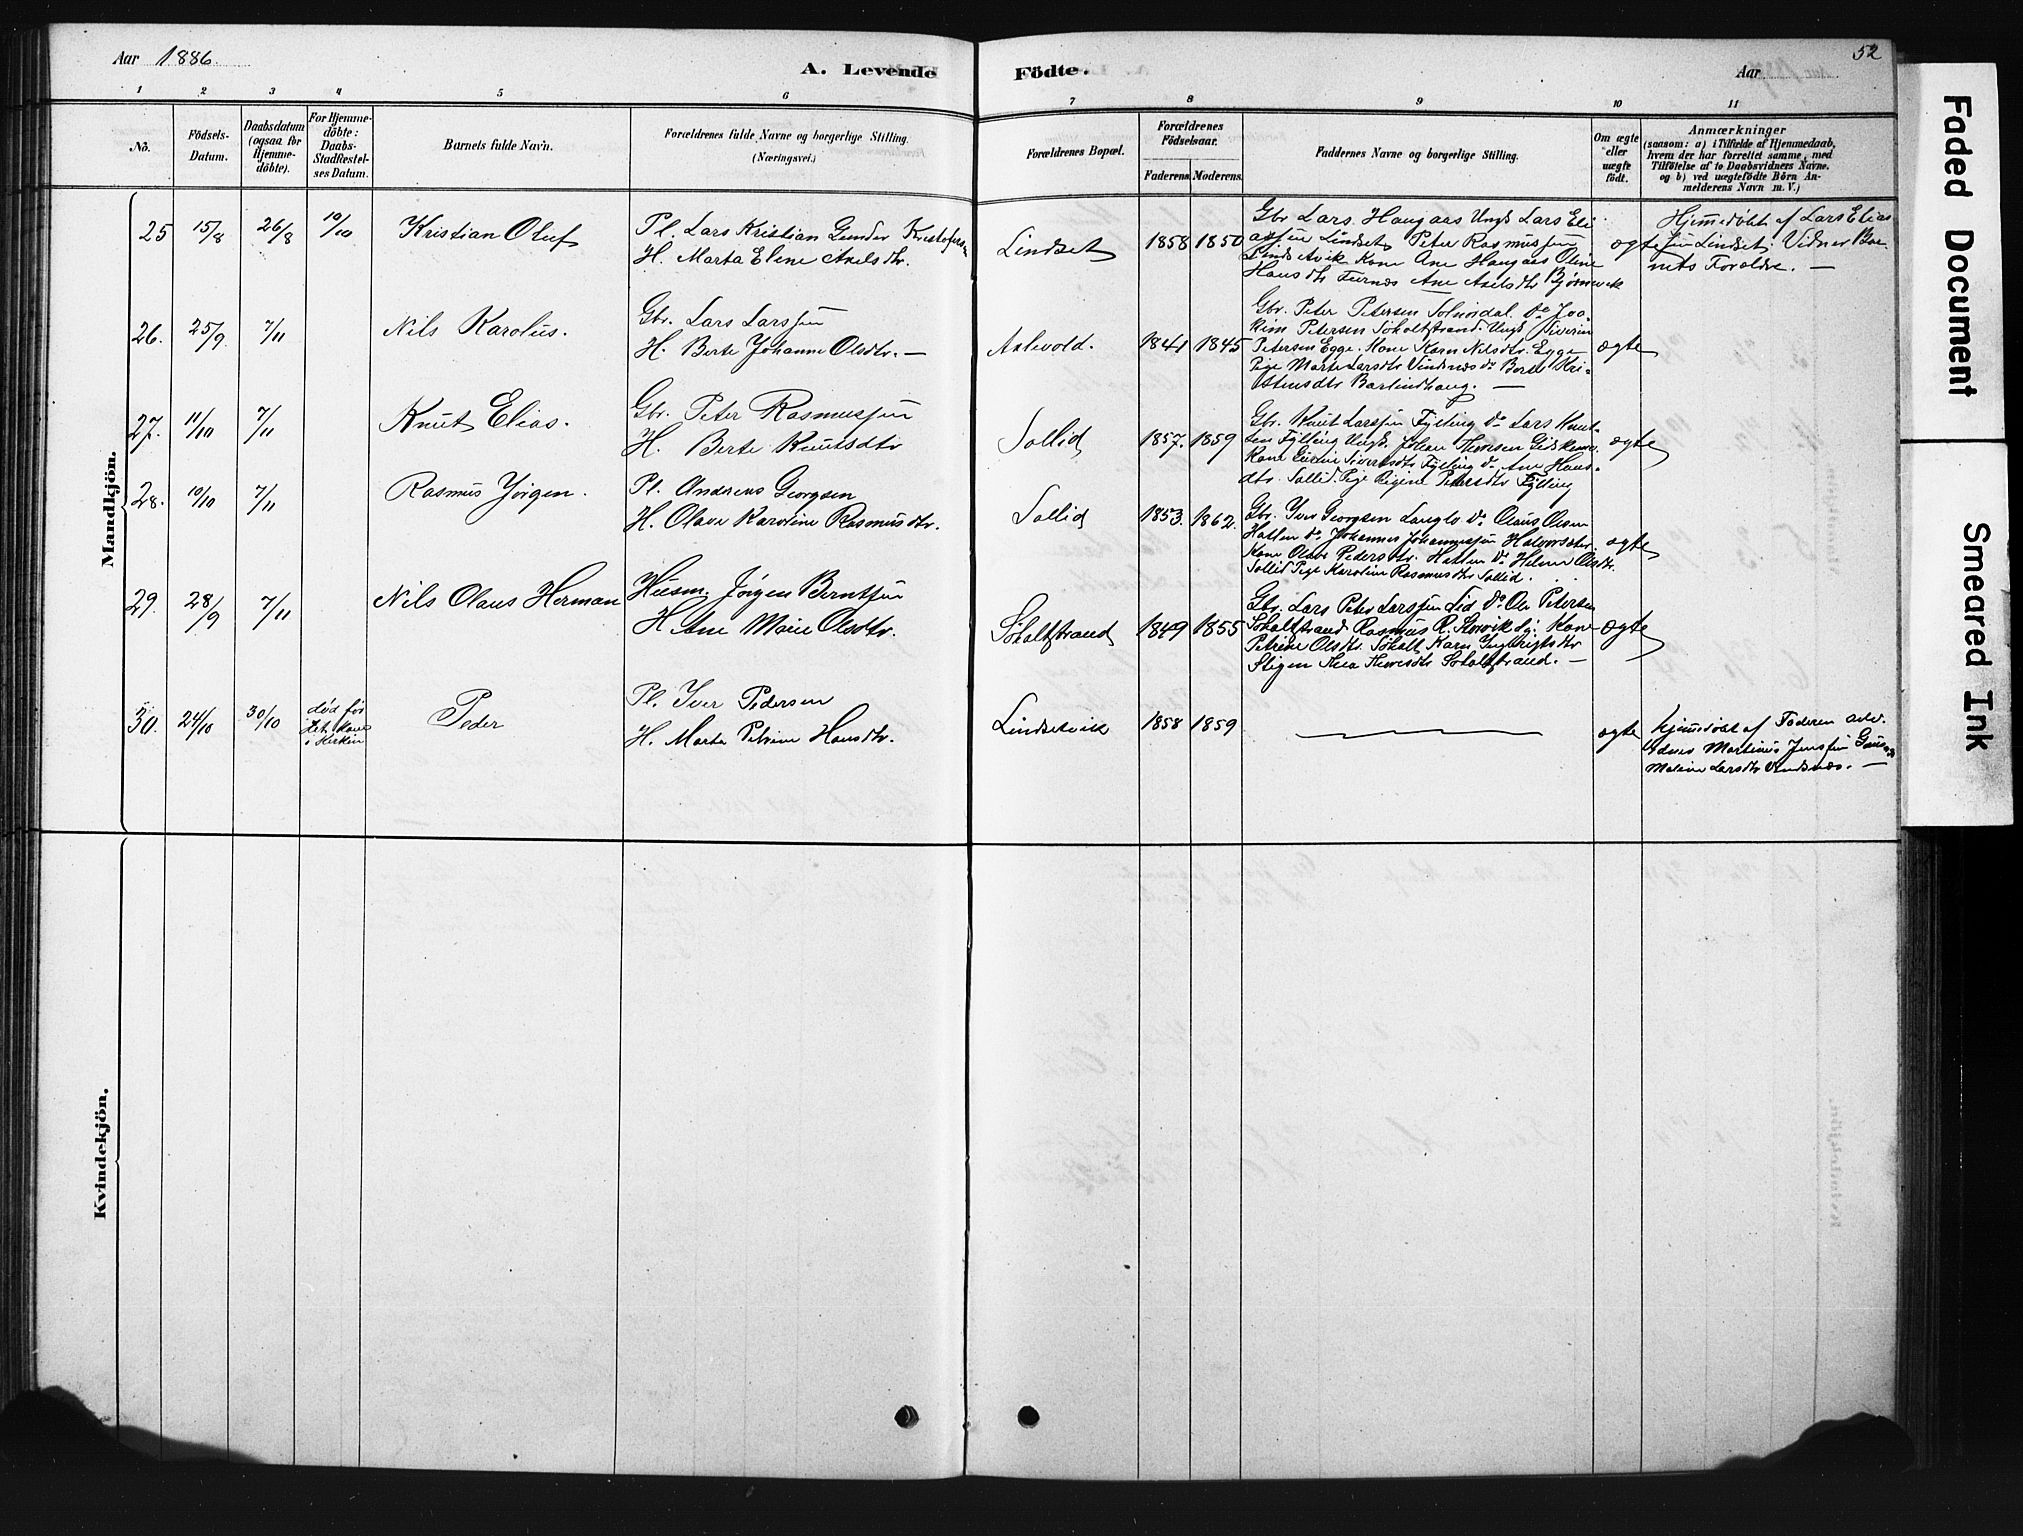 Aar 1886.
A. Levende Födte.
Aar
52
1 2 3 4 5 6 7 8 9 10 11
No.
Födsels-
Datum.
Daabsdatum
(ogsaa for
Hjemme-
döbte).
For Hjemme-
döbte:
Daabs-
Stadfæstel-
ses Datum.
Barnets fulde Navn.
Forældrenes fulde Navne og borgerlige Stilling.
(Næringsvei.)
Forældrenes Bopæl.
Forældrenes
Födselsaar.
Faderens. Moderens.
Faddernes Navne og borgerlige Stilling.
Om ægte
eller
uægte
födt.
Anmærkninger
(saasom: a) i Tilfælde af Hjemmedaab,
hvem der har forrettet samme, med
Tilföielse af to Daabsvidners Navne,
og b) ved uægtefödte Börn An-
melderens Navn m. V.)
Mandkjön.
25 15/8 26/8 10/10 Kristian Oluf
Pl. Lars Kristian Gunder Kristofersen
H. Marta Eline Axelsdtr.
Lindset 1858 1850
Gbr Lars Haugaas Ungk Lars Eli
assen Lindset Peter Rasmussen
Lindsetvik Kone Ane Haugaas Oline
Hansdtr Furnæs Ane Axelsdtr Bjørnevik
ægte
Hjemedøbt af Lars Elias
sen Lindset. Vidner Bar
nets Forældre. —
26. 25/9 7/11 Nils Karolus.
Gbr. Lars Larssen
H. Berte Johanne Olsdtr. —
Aalevold. 1841 1845
Gbr. Peter Petersen Solnørdal. Do Joa-
kim Petersen Søholtstrand. Ungk Siverin
Petersen Egge. Kone Karn Nilsdtr. Egge
Pige Marte Larsdtr Vindsnæs do Berte Kri-
stensdtr Barlindhaug. —
ægte
27. 11/10 7/11 Knut Elias.
Gbr. Peter Rasmussen
H. Berte Knutsdtr
Sollid 1857. 1859
Gbr. Knut Larssen Fylling do Lars Knut-
sen Fylling Ungk. Johan
Kone Sivertsdtr Fylling do Ane Hans-
dtr. Sollid. Pige Petersdtr Fylling
ægte
28. 10/10 7/11 Rasmus Jørgen.
Pl. Andreas Georgsen
H. Olave Karoline Rasmusdtr.
Sollid 1853. 1862.
Gbr. Iver Georgsen Langlo do Olaus Olsen
Hatten do Johannes Johannessen
Kone Olave Pedersdtr. Hatten do Helene Olsdtr.
Sollid Pige Karoline Rasmusdtr Sollid.
ægte
29. 28/9 7/11 Nils Olaus Herman
Husm. Jørgen Berntsen
H. Ane Marie Olsdtr.
Søholtstrand 1849 1855
Gbr. Lars Peter Larssen Lid do Ole Petersen
Søholtstrand Rasmus R. Storvik Kone
Petrine Olsdtr. Søholt Karn Ingebrigtsdtr
Stigen Søholtstrand. —
ægte
30. 24/10 30/10 død før
det kom
i Kirken
Peder
Pl. Iver Pedersen
H. Marta Petrine Hansdtr.
Lindsetvik 1858 1859
ægte
Hjemedøbt af Faderen
Vidner Martinus Jenssen
Larsdtr Vindsnæs. —
Kvindekjön.
Faded Document
Smeared Ink